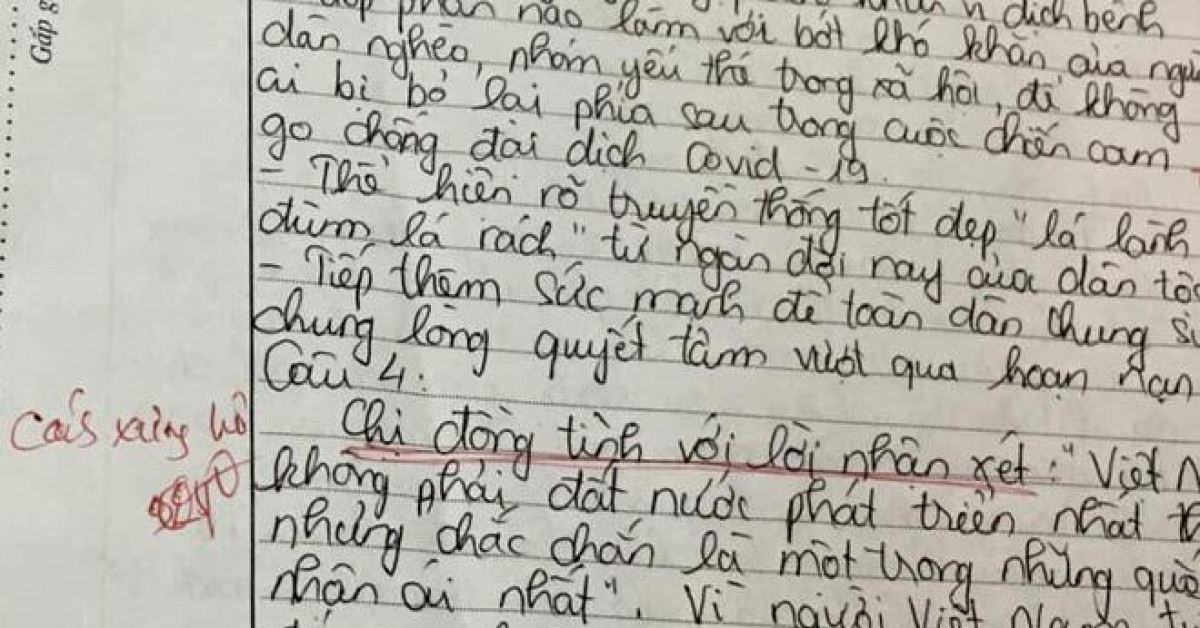 Gấp g
góp phần nào làm vơi bớt khó khăn của người
dân nghèo, nhóm yếu thế trong xã hội, để không
ai bị bỏ lại phía sau trong cuộc chiến cam
go chống đại dịch Covid-19.
- Thể hiện rõ truyền thống tốt đẹp "lá lành
đùm lá rách" từ ngàn đời nay của dân tộc
- Tiếp thêm sức mạnh để toàn dân chung
chung lòng quyết tâm vượt qua hoạn nạn
Câu 4:
Cách xưng hô
Chị đồng tình với lời nhận xét: "Việt N
không phải đất nước phát triển nhất
nhưng chắc chắn là một trong những
nhân ái nhất". Vì người Việt Nam